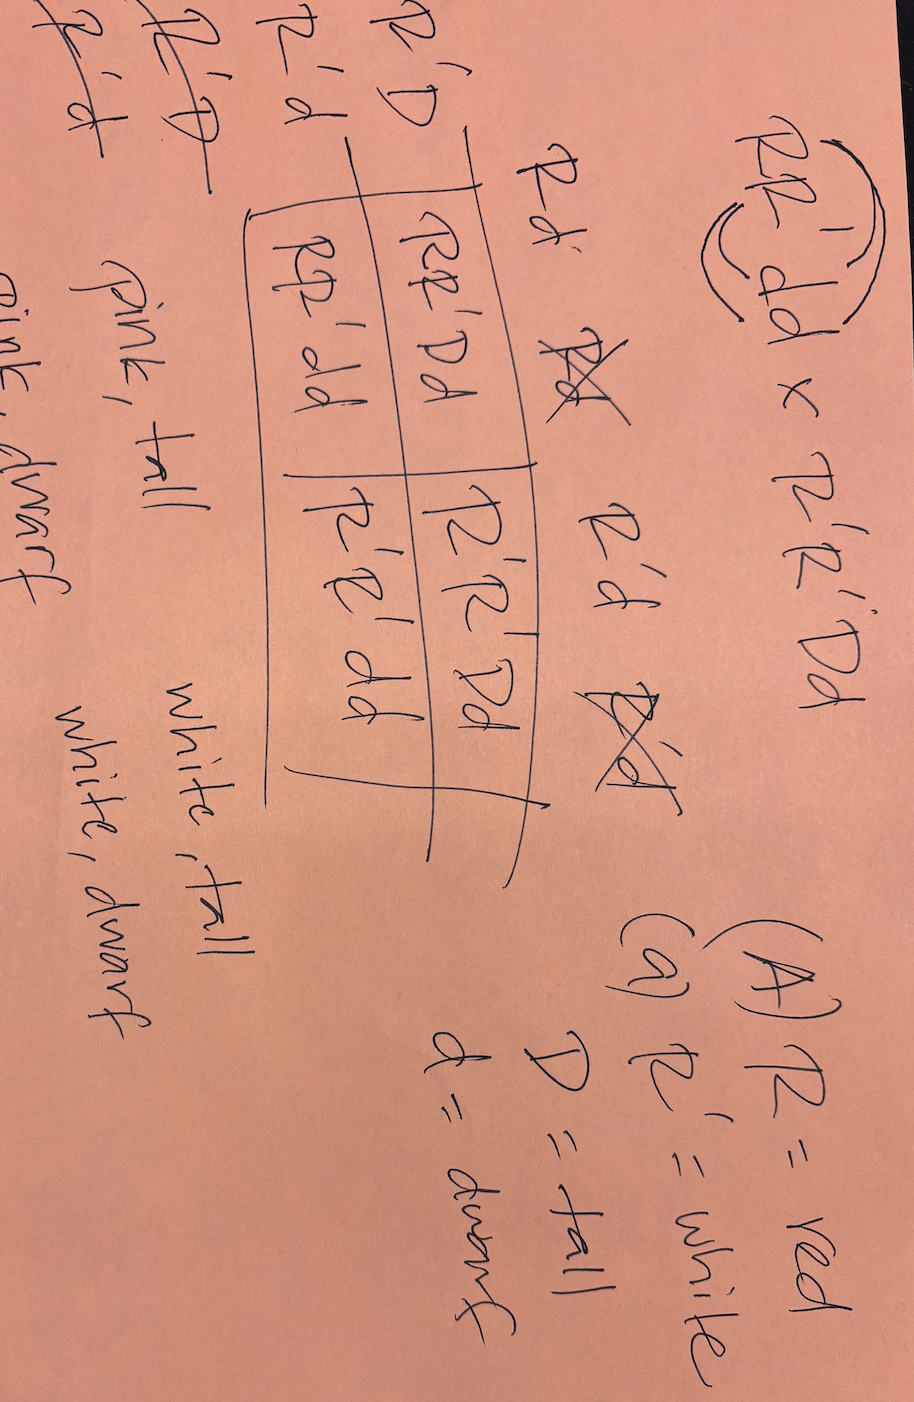 RR'dd x R'R'Dd
(A) R = red
(a) R' = white
Rd Rd R'd R'd
D = tall
R'D RR'Dd R'R'Dd
d = dwarf
R'd RR'dd R'R'dd
R'D
R'd
pink, tall white, tall
pink, dwarf white, dwarf